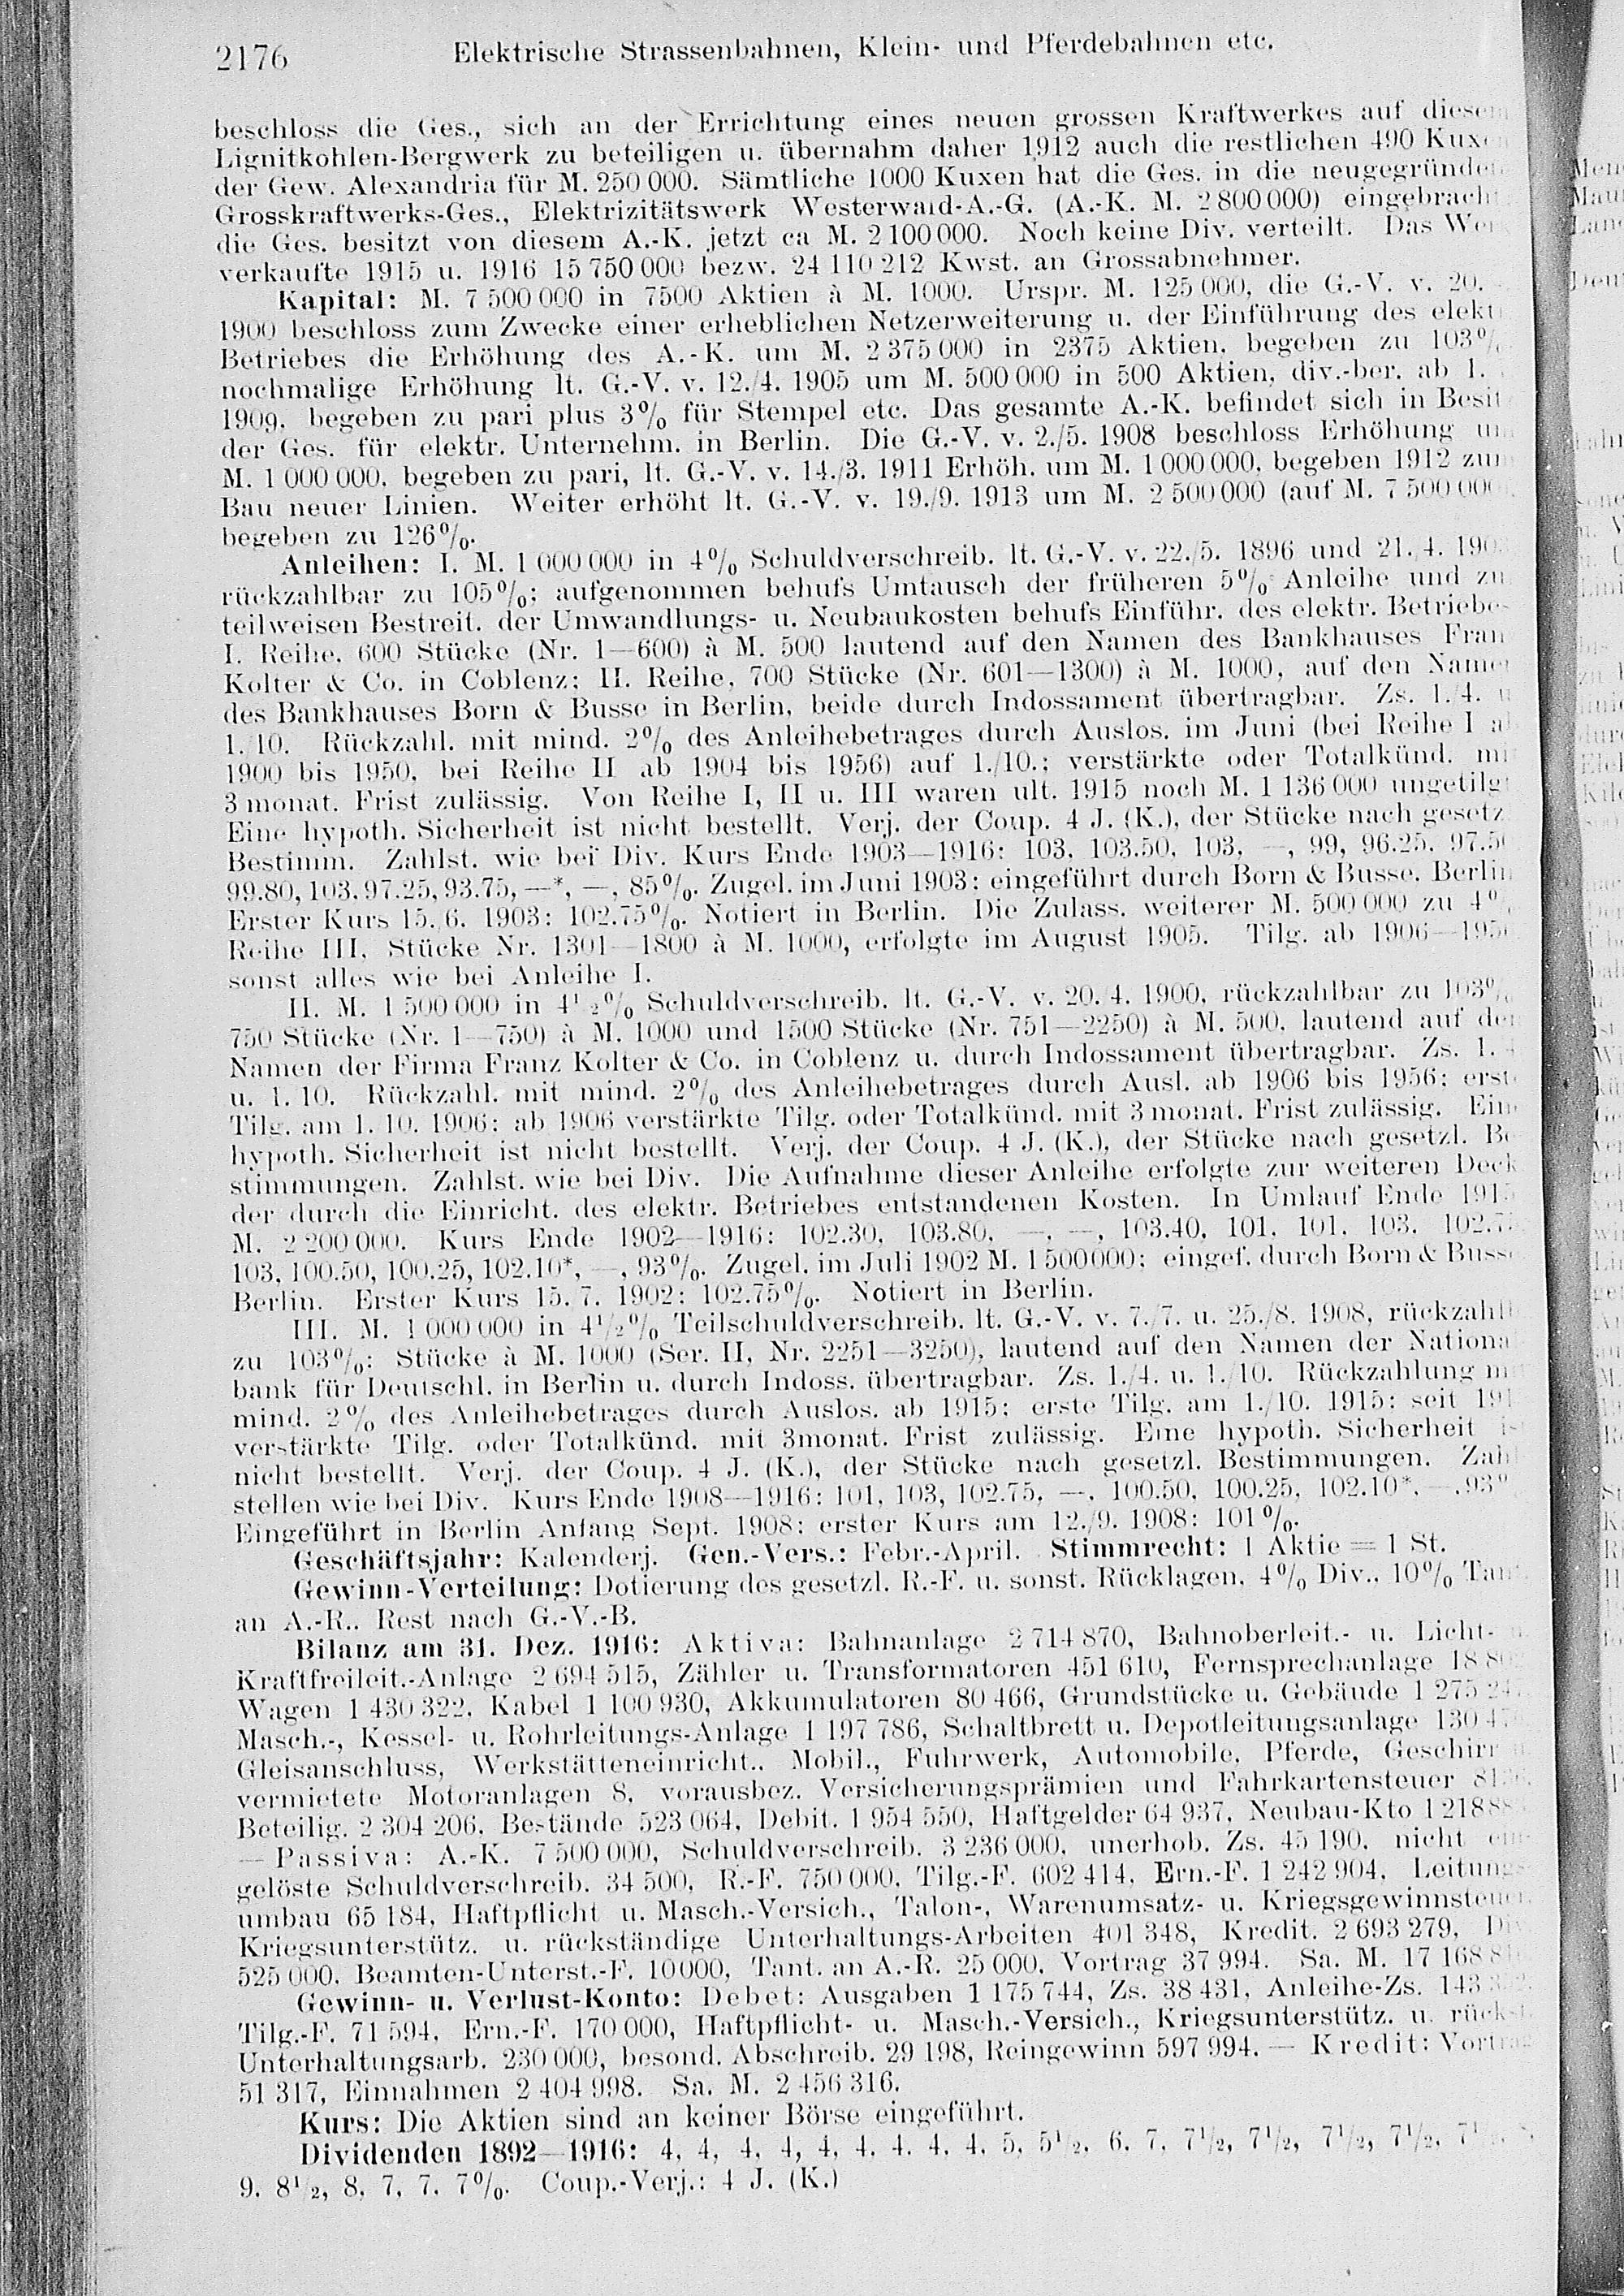 2176 Elektrische Strassenbahnen, Klein- und Pferdebahnen etc.
beschloss die Ges., sich an der Errichtung eines neuen grossen Kraftwerkes auf diesem
Lignitkohlen-Bergwerk zu beteiligen u. übernahm daher 1912 auch die restlichen 490 Kuxen
der Gew. Alexandria für M. 250 000. Sämtliche 1000 Kuxen hat die Ges. in die neugegründete
Grosskraftwerks-Ges., Elektrizitätswerk Westerwald-A.-G. (A.-K. M. 2 800 000) eingebracht
die Ges. besitzt von diesem A.-K. jetzt ca M. 2 100 000. Noch keine Div. verteilt. Das Werk
verkaufte 1915 u. 1916 15 750 000 bezw. 24 110 212 Kwst. an Grossabnehmer.
Kapital: M. 7 500 000 in 7500 Aktien à M. 1000. Urspr. M. 125 000, die G.-V. v. 20.
1900 beschloss zum Zwecke einer erheblichen Netzerweiterung u. der Einführung des elektr
Betriebes die Erhöhung des A.-K. um M. 2 375 000 in 2375 Aktien, begeben zu 103%
nochmalige Erhöhung lt. G.-V. v. 12./4. 1905 um M. 500 000 in 500 Aktien, div.-ber. ab 1.
1909, begeben zu pari plus 3% für Stempel etc. Das gesamte A.-K. befindet sich in Besitz
der Ges. für elektr. Unternehm. in Berlin. Die G.-V. v. 2./5. 1908 beschloss Erhöhung um
M. 1 000 000, begeben zu pari, lt. G.-V. v. 14./3. 1911 Erhöh. um M. 1 000 000, begeben 1912 zum
Bau neuer Linien. Weiter erhöht lt. G.-V. v. 19./9. 1913 um M. 2 500 000 (auf M. 7 500 000
begeben zu 126%.
Anleihen: I. M. 1 000 000 in 4% Schuldverschreib. lt. G.-V. v. 22./5. 1896 und 21./4. 190
rückzahlbar zu 105%; aufgenommen behufs Umtausch der früheren 5% Anleihe und zu
teilweisen Bestreit. der Umwandlungs- u. Neubaukosten behufs Einführ. des elektr. Betriebes
I. Reihe, 600 Stücke (Nr. 1—600) à M. 500 lautend auf den Namen des Bankhauses Fran
Kolter & Co. in Coblenz; II. Reihe, 700 Stücke (Nr. 601—1300) à M. 1000, auf den Namen
des Bankhauses Born & Busse in Berlin, beide durch Indossament übertragbar. Zs. 1./4. u
1./10. Rückzahl. mit mind. 2% des Anleihebetrages durch Auslos. im Juni (bei Reihe I ab
1900 bis 1950, bei Reihe II ab 1904 bis 1956) auf 1./10.; verstärkte oder Totalkünd. mit
3 monat. Frist zulässig. Von Reihe I, II u. III waren ult. 1915 noch M. 1 136 000 ungetilgt
Eine hypoth. Sicherheit ist nicht bestellt. Verj. der Coup. 4 J. (K.), der Stücke nach gesetz
Bestimm. Zahlst. wie bei Div. Kurs Ende 1903—1916: 103, 103.50, 103, —, 99, 96.25, 97.50
99.80, 103, 97.25, 93.75, —*, —, 85%. Zugel. im Juni 1903; eingeführt durch Born & Busse, Berlin
Erster Kurs 15./6. 1903: 102.75%. Notiert in Berlin. Die Zulass. weiterer M. 500 000 zu 4%
Reihe III, Stücke Nr. 1301—1800 à M. 1000, erfolgte im August 1905. Tilg. ab 1906—1956
sonst alles wie bei Anleihe I.
II. M. 1 500 000 in 4½% Schuldverschreib. lt. G.-V. v. 20./4. 1900, rückzahlbar zu 103%
750 Stücke (Nr. 1—750) à M. 1000 und 1500 Stücke (Nr. 751—2250) à M. 500, lautend auf den
Namen der Firma Franz Kolter & Co. in Coblenz u. durch Indossament übertragbar. Zs. 1./4
u. 1. 10. Rückzahl. mit mind. 2% des Anleihebetrages durch Ausl. ab 1906 bis 1956; erste
Tilg. am 1. 10. 1906; ab 1906 verstärkte Tilg. oder Totalkünd. mit 3 monat. Frist zulässig. Eine
hypoth. Sicherheit ist nicht bestellt. Verj. der Coup. 4 J. (K.), der Stücke nach gesetzl. Be
stimmungen. Zahlst. wie bei Div. Die Aufnahme dieser Anleihe erfolgte zur weiteren Deck
der durch die Einricht. des elektr. Betriebes entstandenen Kosten. In Umlauf Ende 1915
M. 2 200 000. Kurs Ende 1902—1916: 102.30, 103.80, —, —, 103.40, 101, 101, 103, 102.75
103, 100.50, 100.25, 102.10*, —, 93%. Zugel. im Juli 1902 M. 1 500 000; eingef. durch Born & Busse
Berlin. Erster Kurs 15. 7. 1902: 102.75%. Notiert in Berlin.
III. M. 1 000 000 in 4½% Teilschuldverschreib. lt. G.-V. v. 7./7. u. 25./8. 1908, rückzahlb
zu 103%; Stücke à M. 1000 (Ser. II, Nr. 2251—3250), lautend auf den Namen der National
bank für Deutschl. in Berlin u. durch Indoss. übertragbar. Zs. 1./4. u. 1./10. Rückzahlung m
mind. 2% des Anleihebetrages durch Auslos. ab 1915; erste Tilg. am 1./10. 1915; seit 191
verstärkte Tilg. oder Totalkünd. mit 3monat. Frist zulässig. Eine hypoth. Sicherheit is
nicht bestellt. Verj. der Coup. 4 J. (K.), der Stücke nach gesetzl. Bestimmungen. Zahl
stellen wie bei Div. Kurs Ende 1908—1916: 101, 103, 102.75, —, 100.50, 100.25, 102.10*, —, 93%
Eingeführt in Berlin Anfang Sept. 1908; erster Kurs am 12./9. 1908: 101%.
Geschäftsjahr: Kalenderj. Gen.-Vers.: Febr.-April. Stimmrecht: 1 Aktie = 1 St.
Gewinn-Verteilung: Dotierung des gesetzl. R.-F. u. sonst. Rücklagen, 4% Div., 10% Tant.
an A.-R., Rest nach G.-V.-B.
Bilanz am 31. Dez. 1916: Aktiva: Bahnanlage 2 714 870, Bahnoberleit.- u. Licht-
Kraftfreileit.-Anlage 2 694 515, Zähler u. Transformatoren 451 610, Fernsprechanlage 18 80
Wagen 1 430 322, Kabel 1 100 930, Akkumulatoren 80 466, Grundstücke u. Gebäude 1 275 24
Masch.-, Kessel- u. Rohrleitungs-Anlage 1 197 786, Schaltbrett u. Depotleitungsanlage 130 47
Gleisanschluss, Werkstätteneinricht., Mobil., Fuhrwerk, Automobile, Pferde, Geschirr
vermietete Motoranlagen 8, vorausbez. Versicherungsprämien und Fahrkartensteuer 81
Beteilig. 2 304 206, Bestände 523 064, Debit. 1 954 550, Haftgelder 64 937, Neubau-Kto 1 218 88
— Passiva: A.-K. 7 500 000, Schuldverschreib. 3 236 000, unerhob. Zs. 45 190, nicht ein-
gelöste Schuldverschreib. 34 500, R.-F. 750 000, Tilg.-F. 602 414, Ern.-F. 1 242 904, Leitungs-
umbau 65 184, Haftpflicht u. Masch.-Versich., Talon-, Warenumsatz- u. Kriegsgewinnsteuer,
Kriegsunterstütz. u. rückständige Unterhaltungs-Arbeiten 401 348, Kredit. 2 693 279, Div
525 000, Beamten-Unterst.-F. 10 000, Tant. an A.-R. 25 000, Vortrag 37 994. Sa. M. 17 168 81
Gewinn- u. Verlust-Konto: Debet: Ausgaben 1 175 744, Zs. 38 431, Anleihe-Zs. 143
Tilg.-F. 71 594, Ern.-F. 170 000, Haftpflicht- u. Masch.-Versich., Kriegsunterstütz. u. rückst.
Unterhaltungsarb. 230 000, besond. Abschreib. 29 198, Reingewinn 597 994. — Kredit: Vortrag
51 317, Einnahmen 2 404 998. Sa. M. 2 456 316.
Kurs: Die Aktien sind an keiner Börse eingeführt.
Dividenden 1892—1916: 4, 4, 4, 4, 4, 4, 4, 4, 4, 5, 5½, 6, 7, 7½, 7½, 7½, 7½, 7½
9, 8½, 8, 7, 7, 7%. Coup.-Verj.: 4 J. (K.)